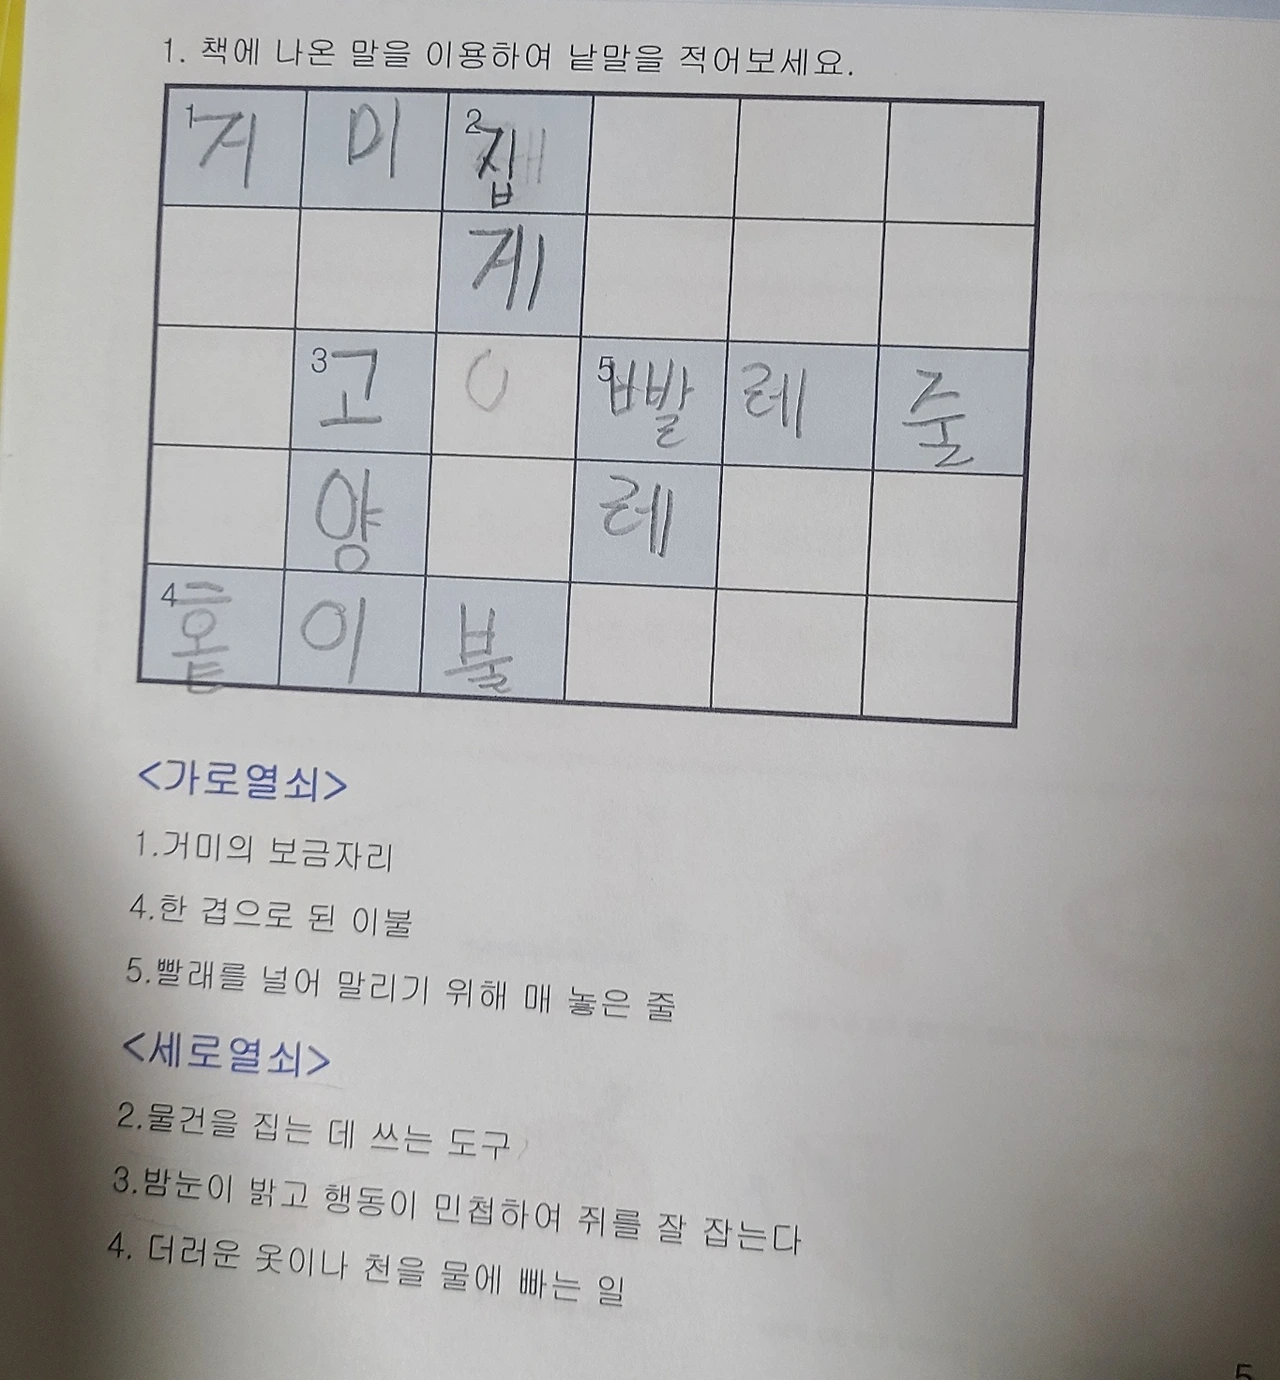 1. 책에 나온 말을 이용하여 낱말을 적어보세요.
1거 미 2집
게
3고 5빨 레 줄
양 레
4홑 이 불
<가로열쇠>
1.거미의 보금자리
4.한 겹으로 된 이불
5.빨래를 널어 말리기 위해 매 놓은 줄
<세로열쇠>
2.물건을 집는 데 쓰는 도구
3.밤눈이 밝고 행동이 민첩하여 쥐를 잘 잡는다
4. 더러운 옷이나 천을 물에 빠는 일
5